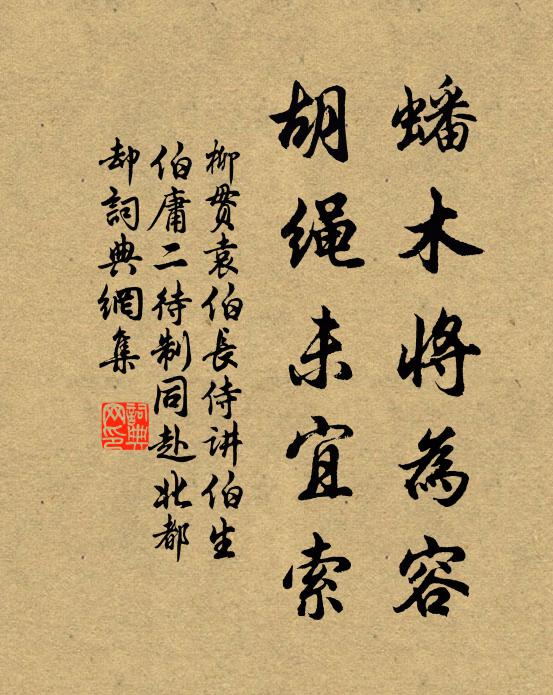 蟠木將為容
胡绳未宜索
柳贯袁伯長侍讲伯生
伯庸二待制同赴北都
却詞典網集
詞典
网印